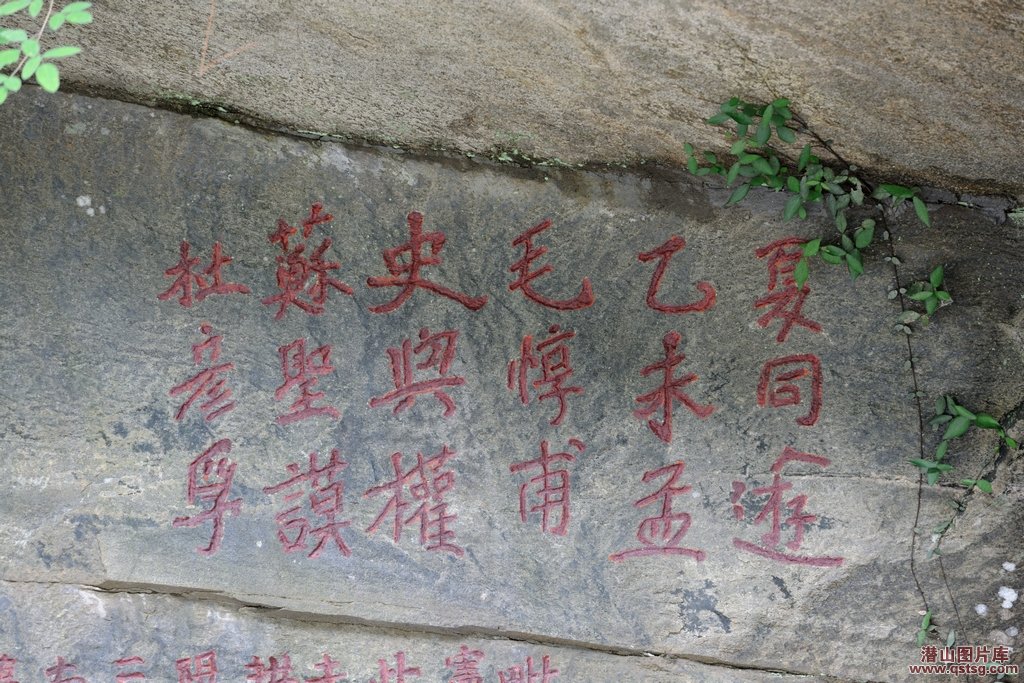 杜彦孚
蘇聖謨
史與權
毛惇甫
乙未孟
夏同遊
潜山图片库
www.qstsg.com